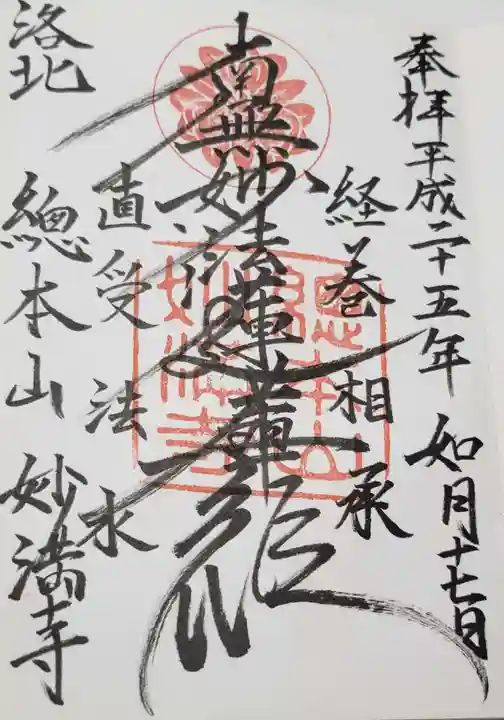 奉拝 平成二十五年 如月十七日
経巻相承
南無妙法蓮華経
直受法水
洛北
總本山 妙満寺
總本山
妙満寺